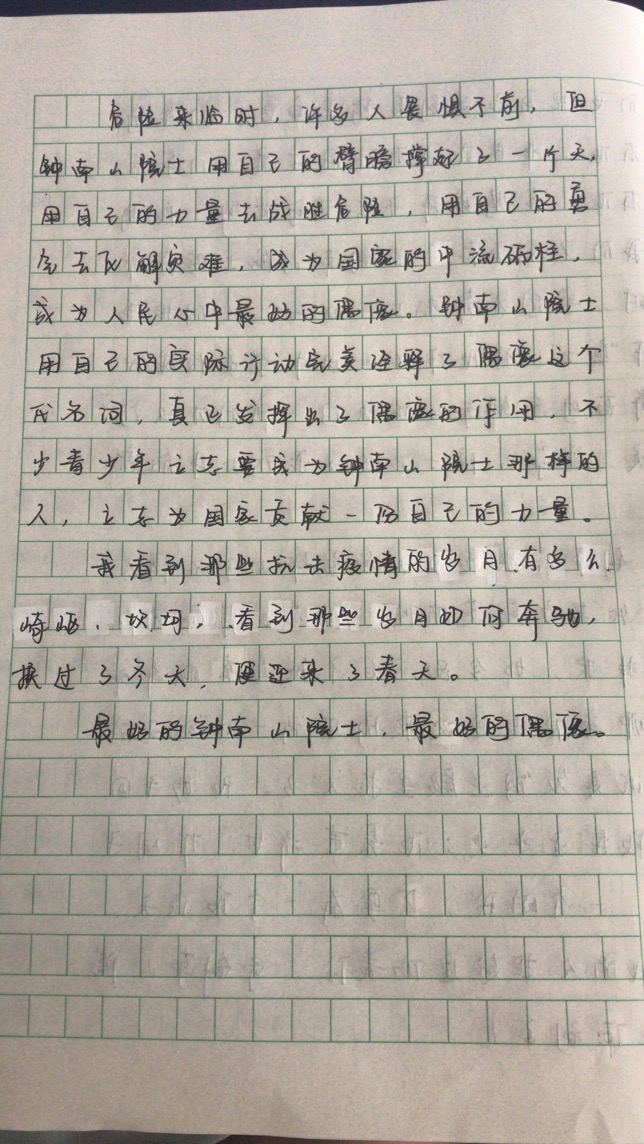 危险来临时，许多人畏惧不前，但
钟南山院士用自己的臂膀撑起了一片天，
用自己的力量去战胜危险，用自己的勇
气去化解灾难，成为国家的中流砥柱，
成为人民心中最好的偶像。钟南山院士
用自己的实际行动完美诠释了偶像这个
代名词，真正发挥出了偶像的作用，不
少青少年立志要成为钟南山院士那样的
人，立志为国家贡献一份自己的力量。
我看到那些抗击疫情的岁月有多么
崎岖、坎坷，看到那些岁月如何奔驰，
挨过了冬天，便迎来了春天。
最好的钟南山院士，最好的偶像。